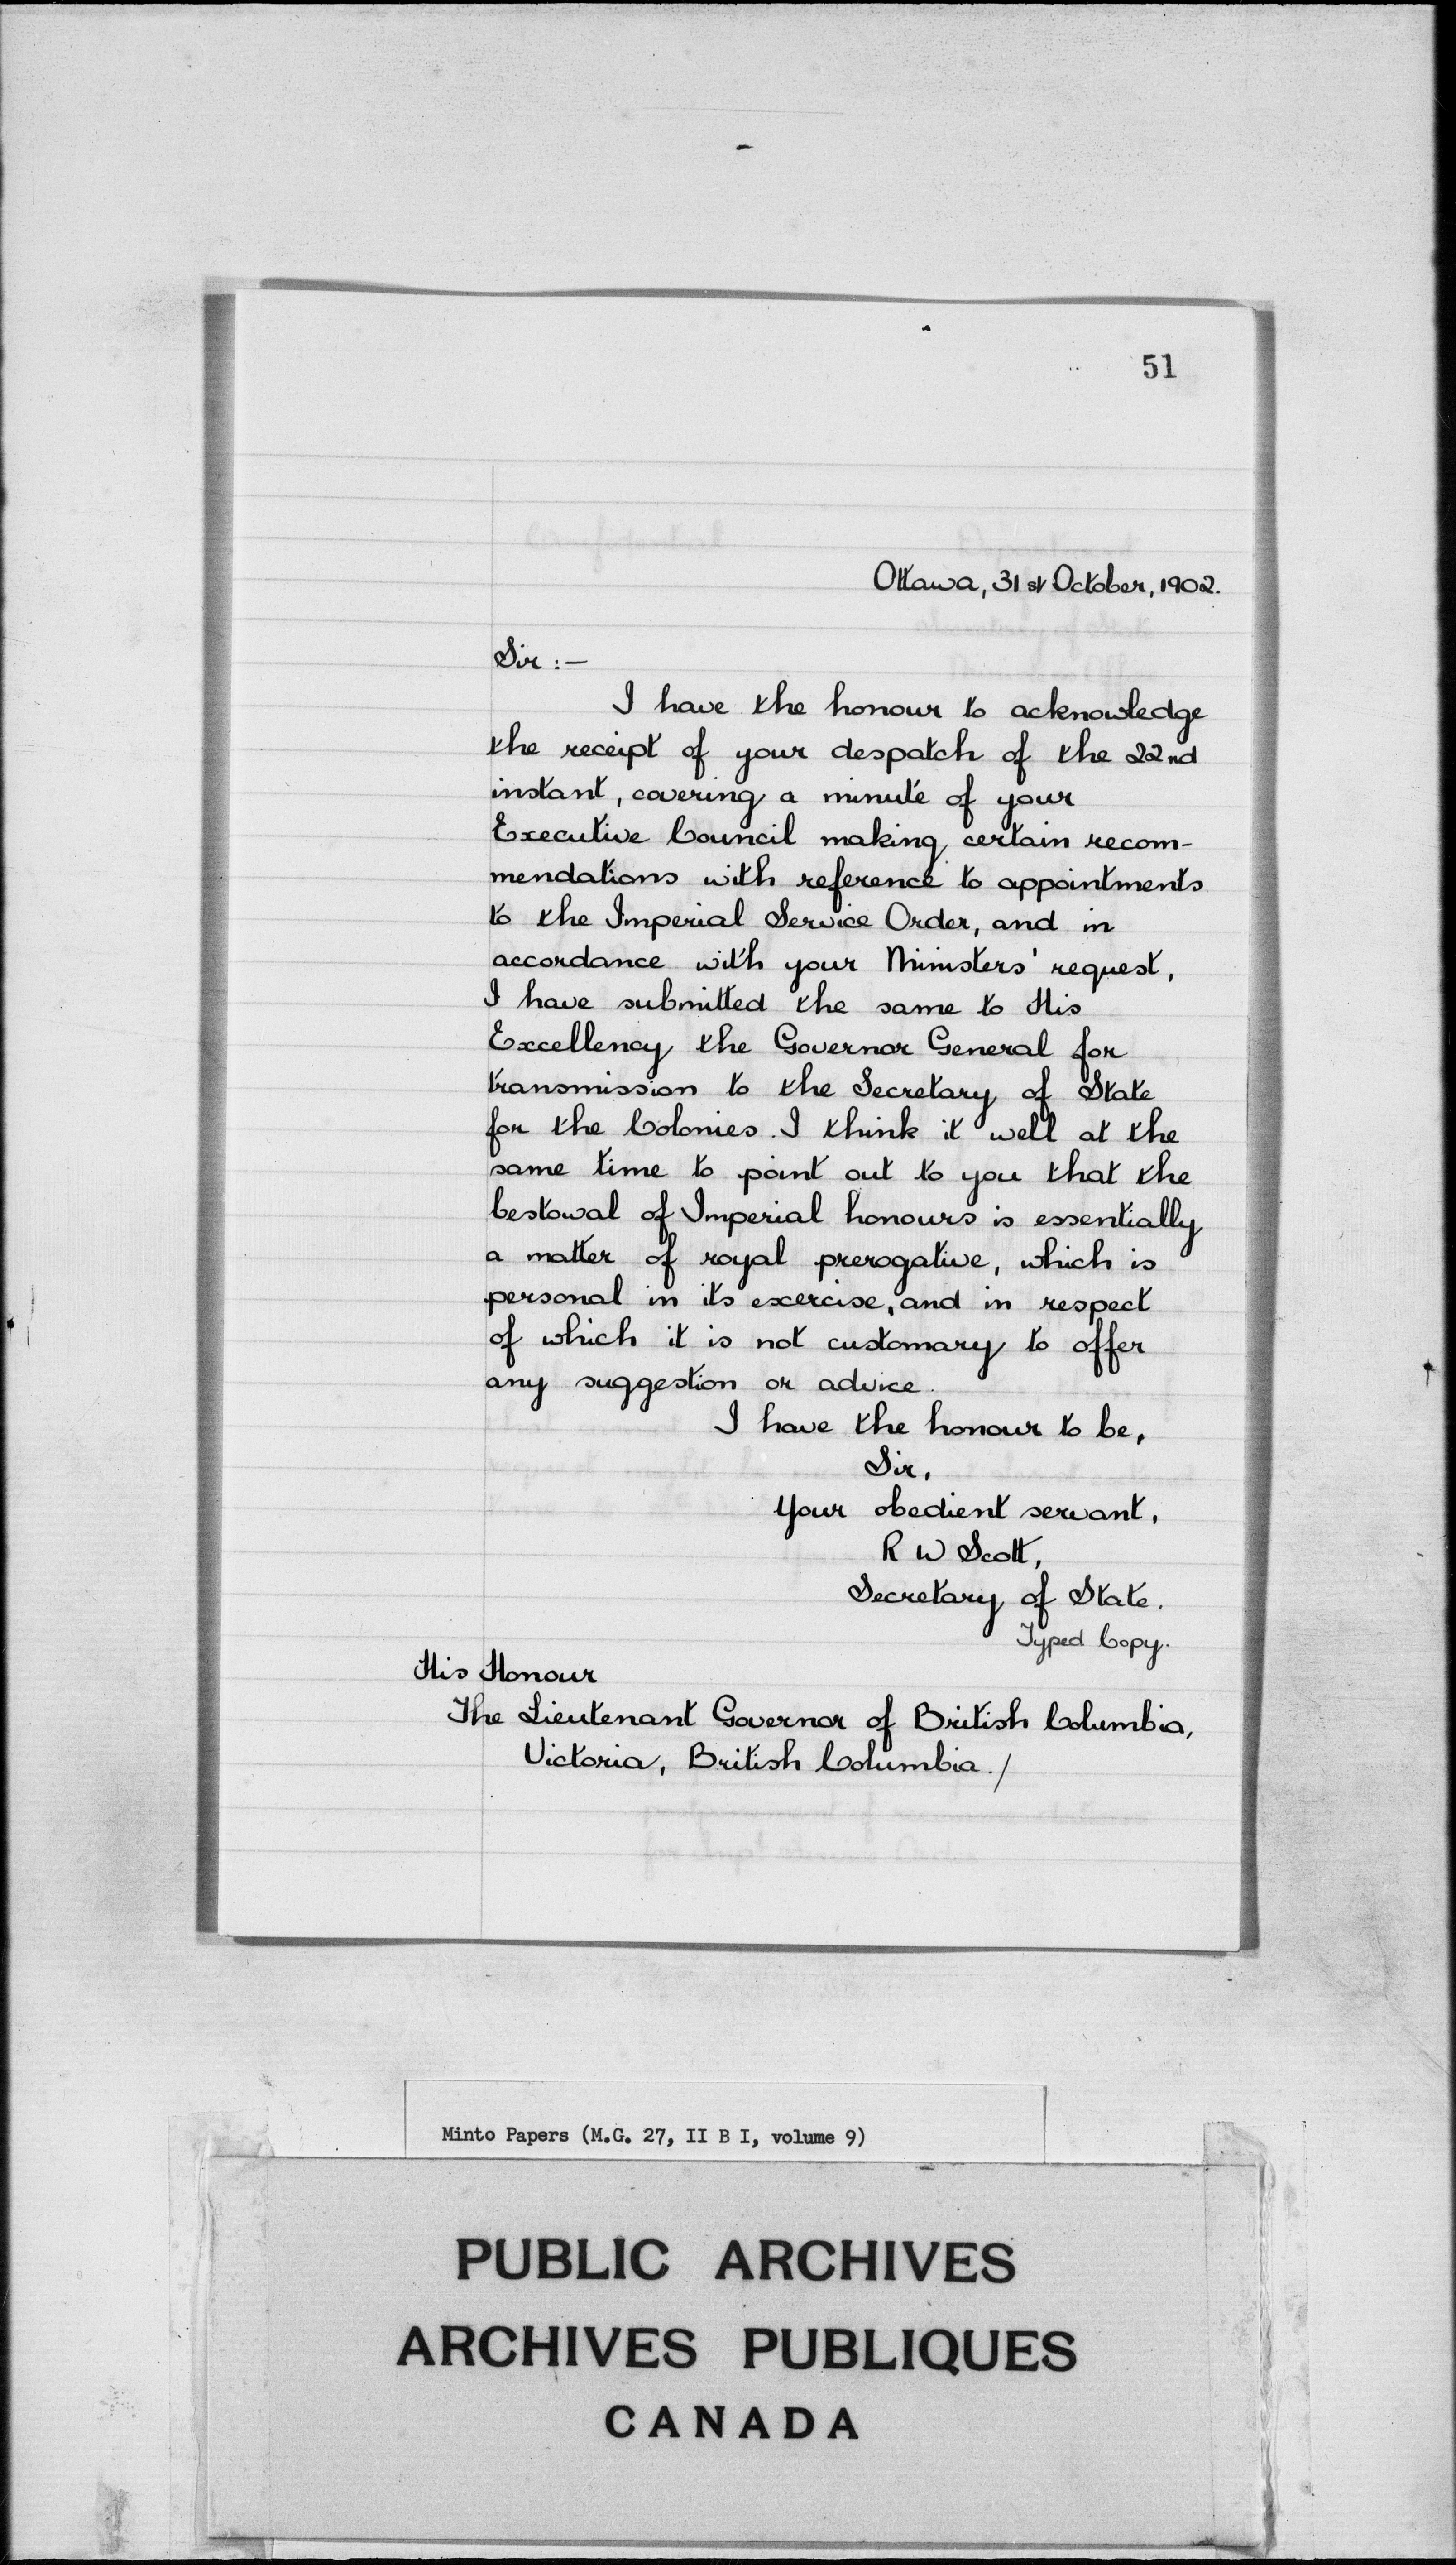 51
Ottawa, 31st October, 1902.
Sir :—
I have the honour to acknowledge
the receipt of your despatch of the 22nd
instant, covering a minute of your
Executive Council making certain recom-
mendations with reference to appointments
to the Imperial Service Order, and in
accordance with your Ministers' request,
I have submitted the same to His
Excellency the Governor General for
transmission to the Secretary of State
for the Colonies. I think it well at the
same time to point out to you that the
bestowal of Imperial honours is essentially
a matter of royal prerogative, which is
personal in its exercise, and in respect
of which it is not customary to offer
any suggestion or advice.
I have the honour to be,
Sir,
Your obedient servant,
R W Scott,
Secretary of State.
Typed Copy.
His Honour
The Lieutenant Governor of British Columbia,
Victoria, British Columbia./
Minto Papers (M.G. 27, II B I, volume 9)
PUBLIC ARCHIVES
ARCHIVES PUBLIQUES
CANADA